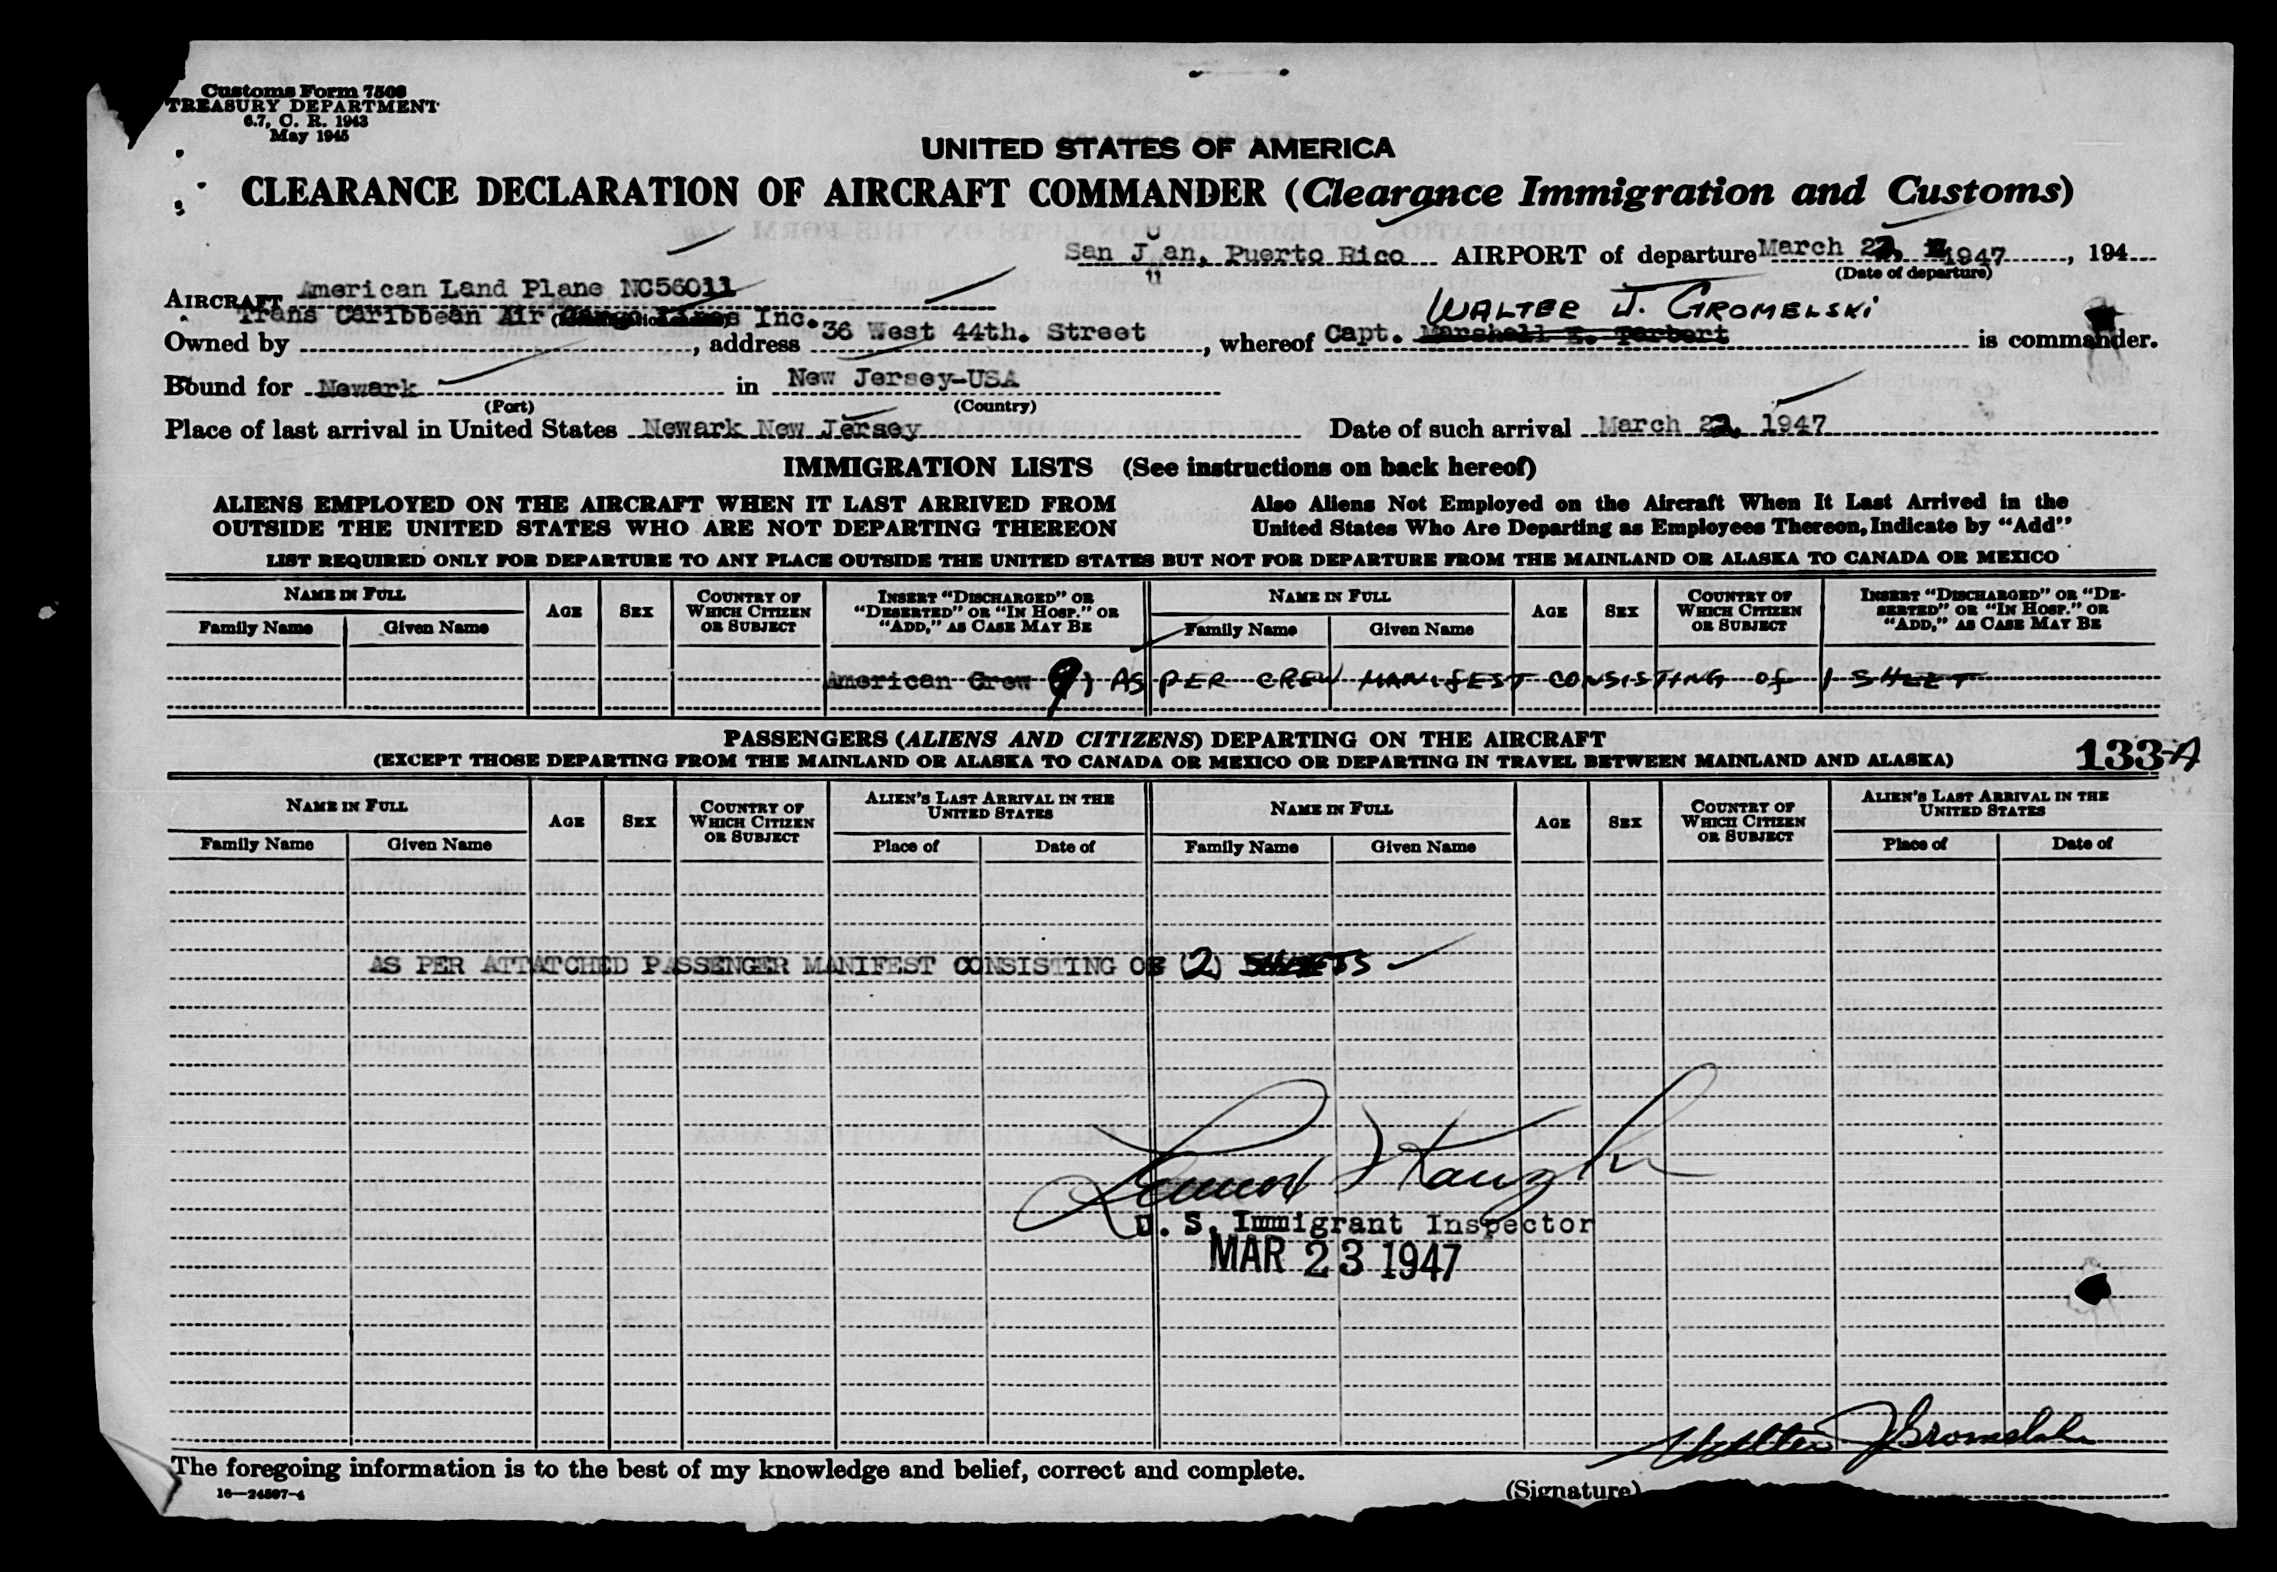 Customs Form 7506
TREASURY DEPARTMENT
6.7, C. R. 1943
May 1945
UNITED STATES OF AMERICA
CLEARANCE DECLARATION OF AIRCRAFT COMMANDER (Clearance Immigration and Customs)
San Juan, Puerto Rico AIRPORT of departure March 1947, 194
(Date of departure)
AIRCRAFT American Land Plane NC56011
WALTER J. GROMELSKI
Trans Caribbean Air Cargo Lines Inc.
Owned by , address 36 West 44th. Street , whereof Capt. Marshall E. Terbert is commander.
Bound for Newark in New Jersey-USA
(Port) (Country)
Place of last arrival in United States Newark New Jersey Date of such arrival March 1947
IMMIGRATION LISTS (See instructions on back hereof)
ALIENS EMPLOYED ON THE AIRCRAFT WHEN IT LAST ARRIVED FROM OUTSIDE THE UNITED STATES WHO ARE NOT DEPARTING THEREON
Also Aliens Not Employed on the Aircraft When It Last Arrived in the United States Who Are Departing as Employees Thereon, Indicate by "Add"
LIST REQUIRED ONLY FOR DEPARTURE TO ANY PLACE OUTSIDE THE UNITED STATES BUT NOT FOR DEPARTURE FROM THE MAINLAND OR ALASKA TO CANADA OR MEXICO
NAME IN FULL AGE SEX COUNTRY OF WHICH CITIZEN OR SUBJECT INSERT "DISCHARGED" OR "DESERTED" OR "IN HOSP." OR "ADD," AS CASE MAY BE NAME IN FULL AGE SEX COUNTRY OF WHICH CITIZEN OR SUBJECT INSERT "DISCHARGED" OR "DESERTED" OR "IN HOSP." OR "ADD," AS CASE MAY BE
Family Name Given Name Family Name Given Name
American Crew (9) AS PER CREW MANIFEST CONSISTING of 1 SHEET
PASSENGERS (ALIENS AND CITIZENS) DEPARTING ON THE AIRCRAFT
(EXCEPT THOSE DEPARTING FROM THE MAINLAND OR ALASKA TO CANADA OR MEXICO OR DEPARTING IN TRAVEL BETWEEN MAINLAND AND ALASKA)
133-A
NAME IN FULL AGE SEX COUNTRY OF WHICH CITIZEN OR SUBJECT ALIEN'S LAST ARRIVAL IN THE UNITED STATES NAME IN FULL AGE SEX COUNTRY OF WHICH CITIZEN OR SUBJECT ALIEN'S LAST ARRIVAL IN THE UNITED STATES
Family Name Given Name Place of Date of Family Name Given Name Place of Date of
AS PER ATTATCHED PASSENGER MANIFEST CONSISTING OF (2) SHEETS
U. S. Immigrant Inspector
MAR 23 1947
Walter J Gromelski
The foregoing information is to the best of my knowledge and belief, correct and complete.
16—24597-4
(Signature)